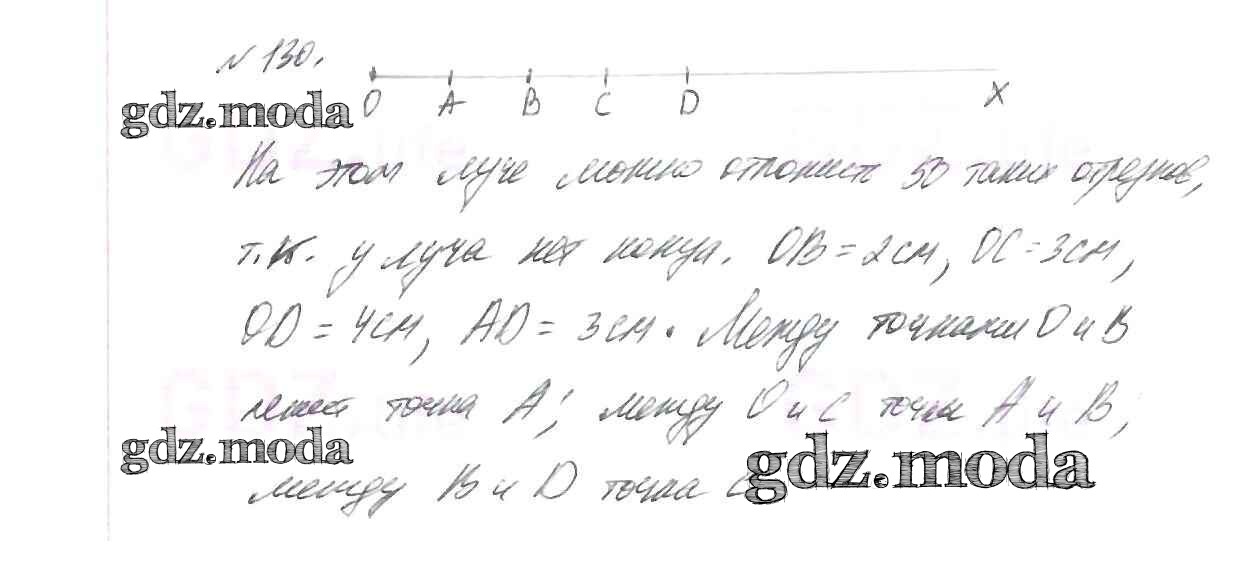 № 130.
O A B C D X
gdz.moda
На этом луче можно отложить 50 таких отрезков,
т.к. у луча нет конца. OB = 2 см, OC = 3 см,
OD = 4 см, AD = 3 см. Между точками O и B
лежит точка A; между O и C точки A и B;
gdz.moda
gdz.moda
между B и D точка C